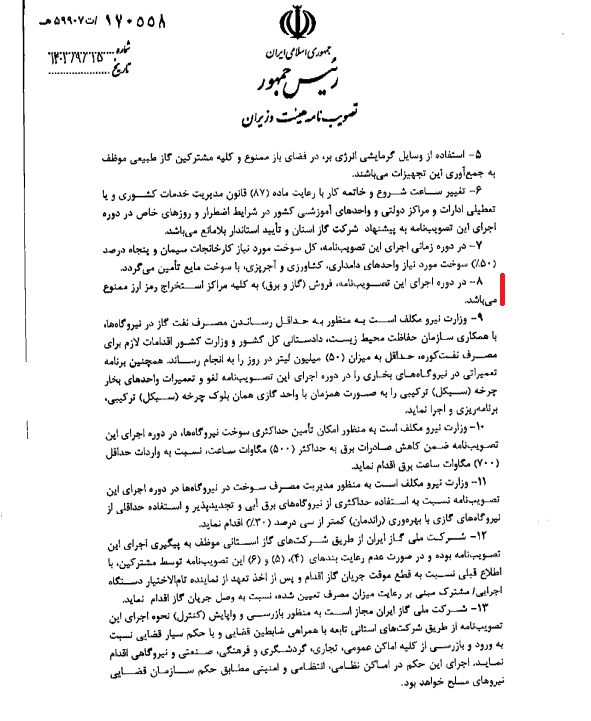 ۱۷۰۵۵۸/ت۵۹۹۰۷هـ
شماره
۱۴۰۲/۹/۲۵
تاریخ
جمهوری اسلامی ایران
رئیس جمهور
تصویب نامه هیئت وزیران
۵- استفاده از وسایل گرمایشی انرژی بر، در فضای باز ممنوع و کلیه مشترکین گاز طبیعی موظف
به جمع‌آوری این تجهیزات می‌باشند.
۶- تغییر ساعت شروع و خاتمه کار با رعایت ماده (۸۷) قانون مدیریت خدمات کشوری و یا
تعطیلی ادارات و مراکز دولتی و واحدهای آموزشی کشور در شرایط اضطرار و روزهای خاص در دوره
اجرای این تصویب‌نامه به پیشنهاد شرکت گاز استان و تأیید استاندار بلامانع می‌باشد.
۷- در دوره زمانی اجرای این تصویب‌نامه، کل سوخت مورد نیاز کارخانجات سیمان و پنجاه درصد
(۵۰٪) سوخت مورد نیاز واحدهای دامداری، کشاورزی و آجرپزی، با سوخت مایع تأمین می‌گردد.
۸- در دوره اجرای این تصویب‌نامه، فروش (گاز و برق) به کلیه مراکز استخراج رمز ارز ممنوع
می‌باشد.
۹- وزارت نیرو مکلف است به منظور به حداقل رساندن مصرف نفت گاز در نیروگاه‌ها،
با همکاری سازمان حفاظت محیط زیست، دادستانی کل کشور و وزارت کشور اقدامات لازم برای
مصرف نفت‌کوره، حداقل به میزان (۵۰) میلیون لیتر در روز را به انجام رساند. همچنین برنامه
تعمیراتی در نیروگاه‌های بخاری را در دوره اجرای این تصویب‌نامه لغو و تعمیرات واحدهای بخار
چرخه (سیکل) ترکیبی را به صورت همزمان با واحد گازی همان بلوک چرخه (سیکل) ترکیبی،
برنامه‌ریزی و اجرا نماید.
۱۰- وزارت نیرو مکلف است به منظور امکان تأمین حداکثری سوخت نیروگاه‌ها، در دوره اجرای این
تصویب‌نامه ضمن کاهش صادرات برق به حداکثر (۵۰۰) مگاوات ساعت، نسبت به واردات حداقل
(۷۰۰) مگاوات ساعت برق اقدام نماید.
۱۱- وزارت نیرو مکلف است به منظور مدیریت مصرف سوخت در نیروگاه‌ها در دوره اجرای این
تصویب‌نامه نسبت به استفاده حداکثری از نیروگاه‌های برق آبی و تجدیدپذیر و استفاده حداقلی از
نیروگاه های گازی با بهره‌وری (راندمان) کمتر از سی درصد (۳۰٪) اقدام نماید.
۱۲- شرکت ملی گاز ایران از طریق شرکت‌های گاز استانی موظف به پیگیری اجرای این
تصویب‌نامه بوده و در صورت عدم رعایت بندهای (۴)، (۵) و (۶) این تصویب‌نامه توسط مشترکین، با
اطلاع قبلی نسبت به قطع موقت جریان گاز اقدام و پس از اخذ تعهد از نماینده تام‌الاختیار دستگاه
اجرایی/ مشترک مبنی بر رعایت میزان مصرف تعیین شده، نسبت به وصل جریان گاز اقدام نماید.
۱۳- شرکت ملی گاز ایران مجاز است به منظور بازرسی و واپایش (کنترل) نحوه اجرای این
تصویب‌نامه از طریق شرکت‌های استانی تابعه با همراهی ضابطین قضایی و با حکم سیار قضایی نسبت
به ورود و بازرسی از کلیه اماکن عمومی، تجاری، گردشگری و فرهنگی، صنعتی و نیروگاهی اقدام
نماید. اجرای این حکم در اماکن نظامی، انتظامی و امنیتی مطابق حکم سازمان قضایی
نیروهای مسلح خواهد بود.